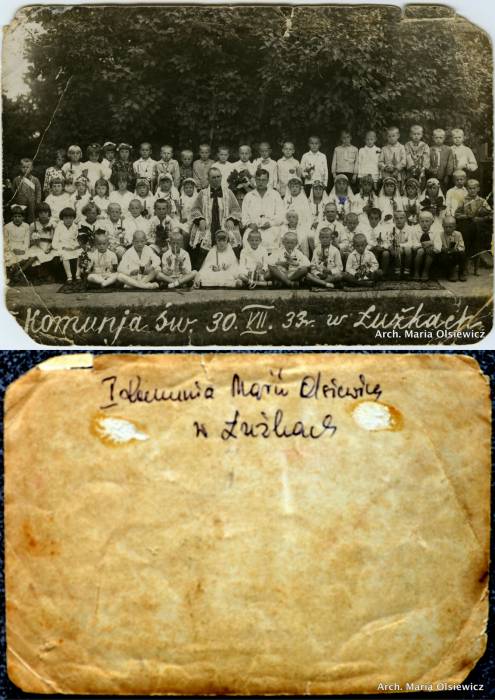 Komunja św. 30. VII. 33r. w Łużkach.
Arch. Maria Olsiewicz
I Komunia Marii Olsiewicz
w Łużkach
Arch. Maria Olsiewicz